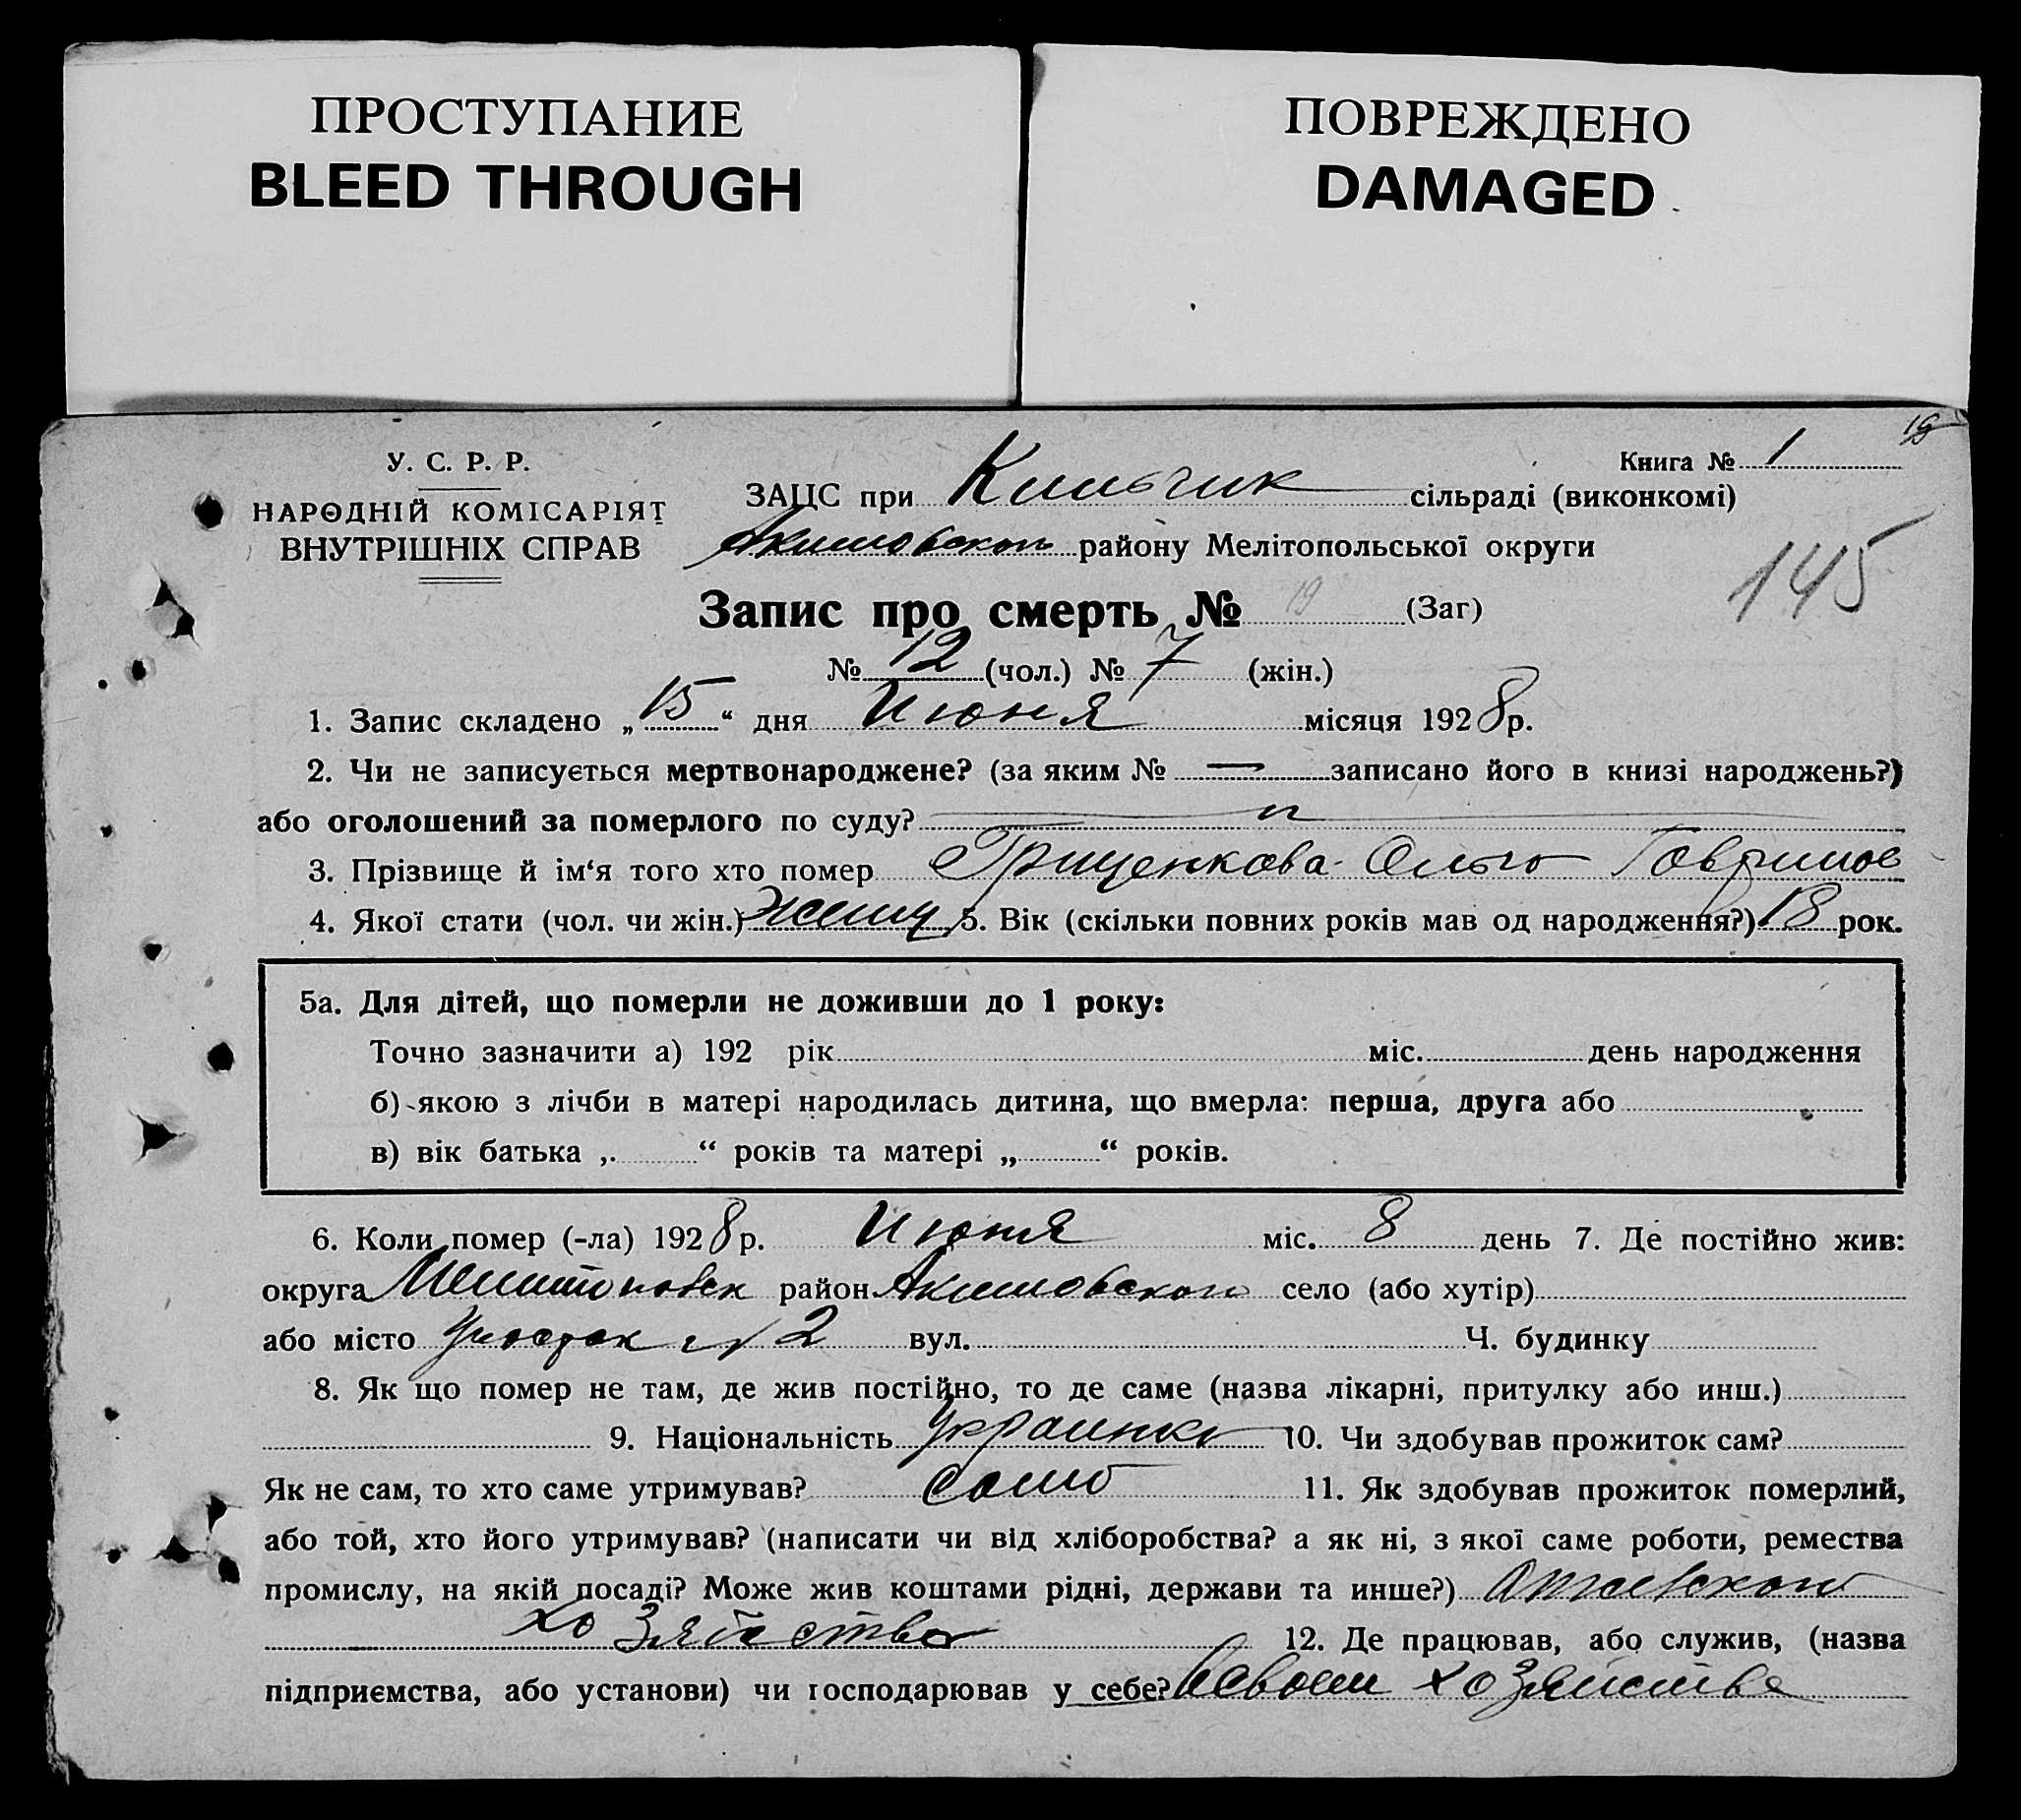 ПРОСТУПАНИЕ
BLEED THROUGH
ПОВРЕЖДЕНО
DAMAGED
19
У. С. Р. Р.
НАРОДНІЙ КОМІСАРІЯТ
ВНУТРІШНІХ СПРАВ
Книга № 1
ЗАЦС при сільраді (виконкомі)
Акимовскогo району Мелітопольської округи
145
Запис про смерть № 19 (Заг)
№ 12 (чол.) № 7 (жін.)
1. Запис складено „15“ дня Июня місяця 1928 р.
2. Чи не записується мертвонароджене? (за яким № — записано його в книзі народжень?)
або оголошений за померлого по суду?
3. Прізвище й ім‘я того хто помер Грищенкова Ольга
4. Якої стати (чол. чи жін.) 5. Вік (скільки повних років мав од народження?) 18 рок.
5а. Для дітей, що померли не доживши до 1 року:
Точно зазначити а) 192 рік міс. день народження
б) якою з лічби в матері народилась дитина, що вмерла: перша, друга або
в) вік батька „ “ років та матері „ “ років.
6. Коли помер (-ла) 1928 р. Июня міс. 8 день 7. Де постійно жив:
округа район Акимовского село (або хутір)
або місто Участок № 2 вул. Ч. будинку
8. Як що помер не там, де жив постійно, то де саме (назва лікарні, притулку або инш.)
9. Національність Украинка 10. Чи здобував прожиток сам?
Як не сам, то хто саме утримував? сама 11. Як здобував прожиток померлий,
або той, хто його утримував? (написати чи від хліборобства? а як ні, з якої саме роботи, ремества
промислу, на якій посаді? Може жив коштами рідні, держави та инше?)
хозяйства 12. Де працював, або служив, (назва
підприємства, або установи) чи господарював у себе? в своем хозяйстве